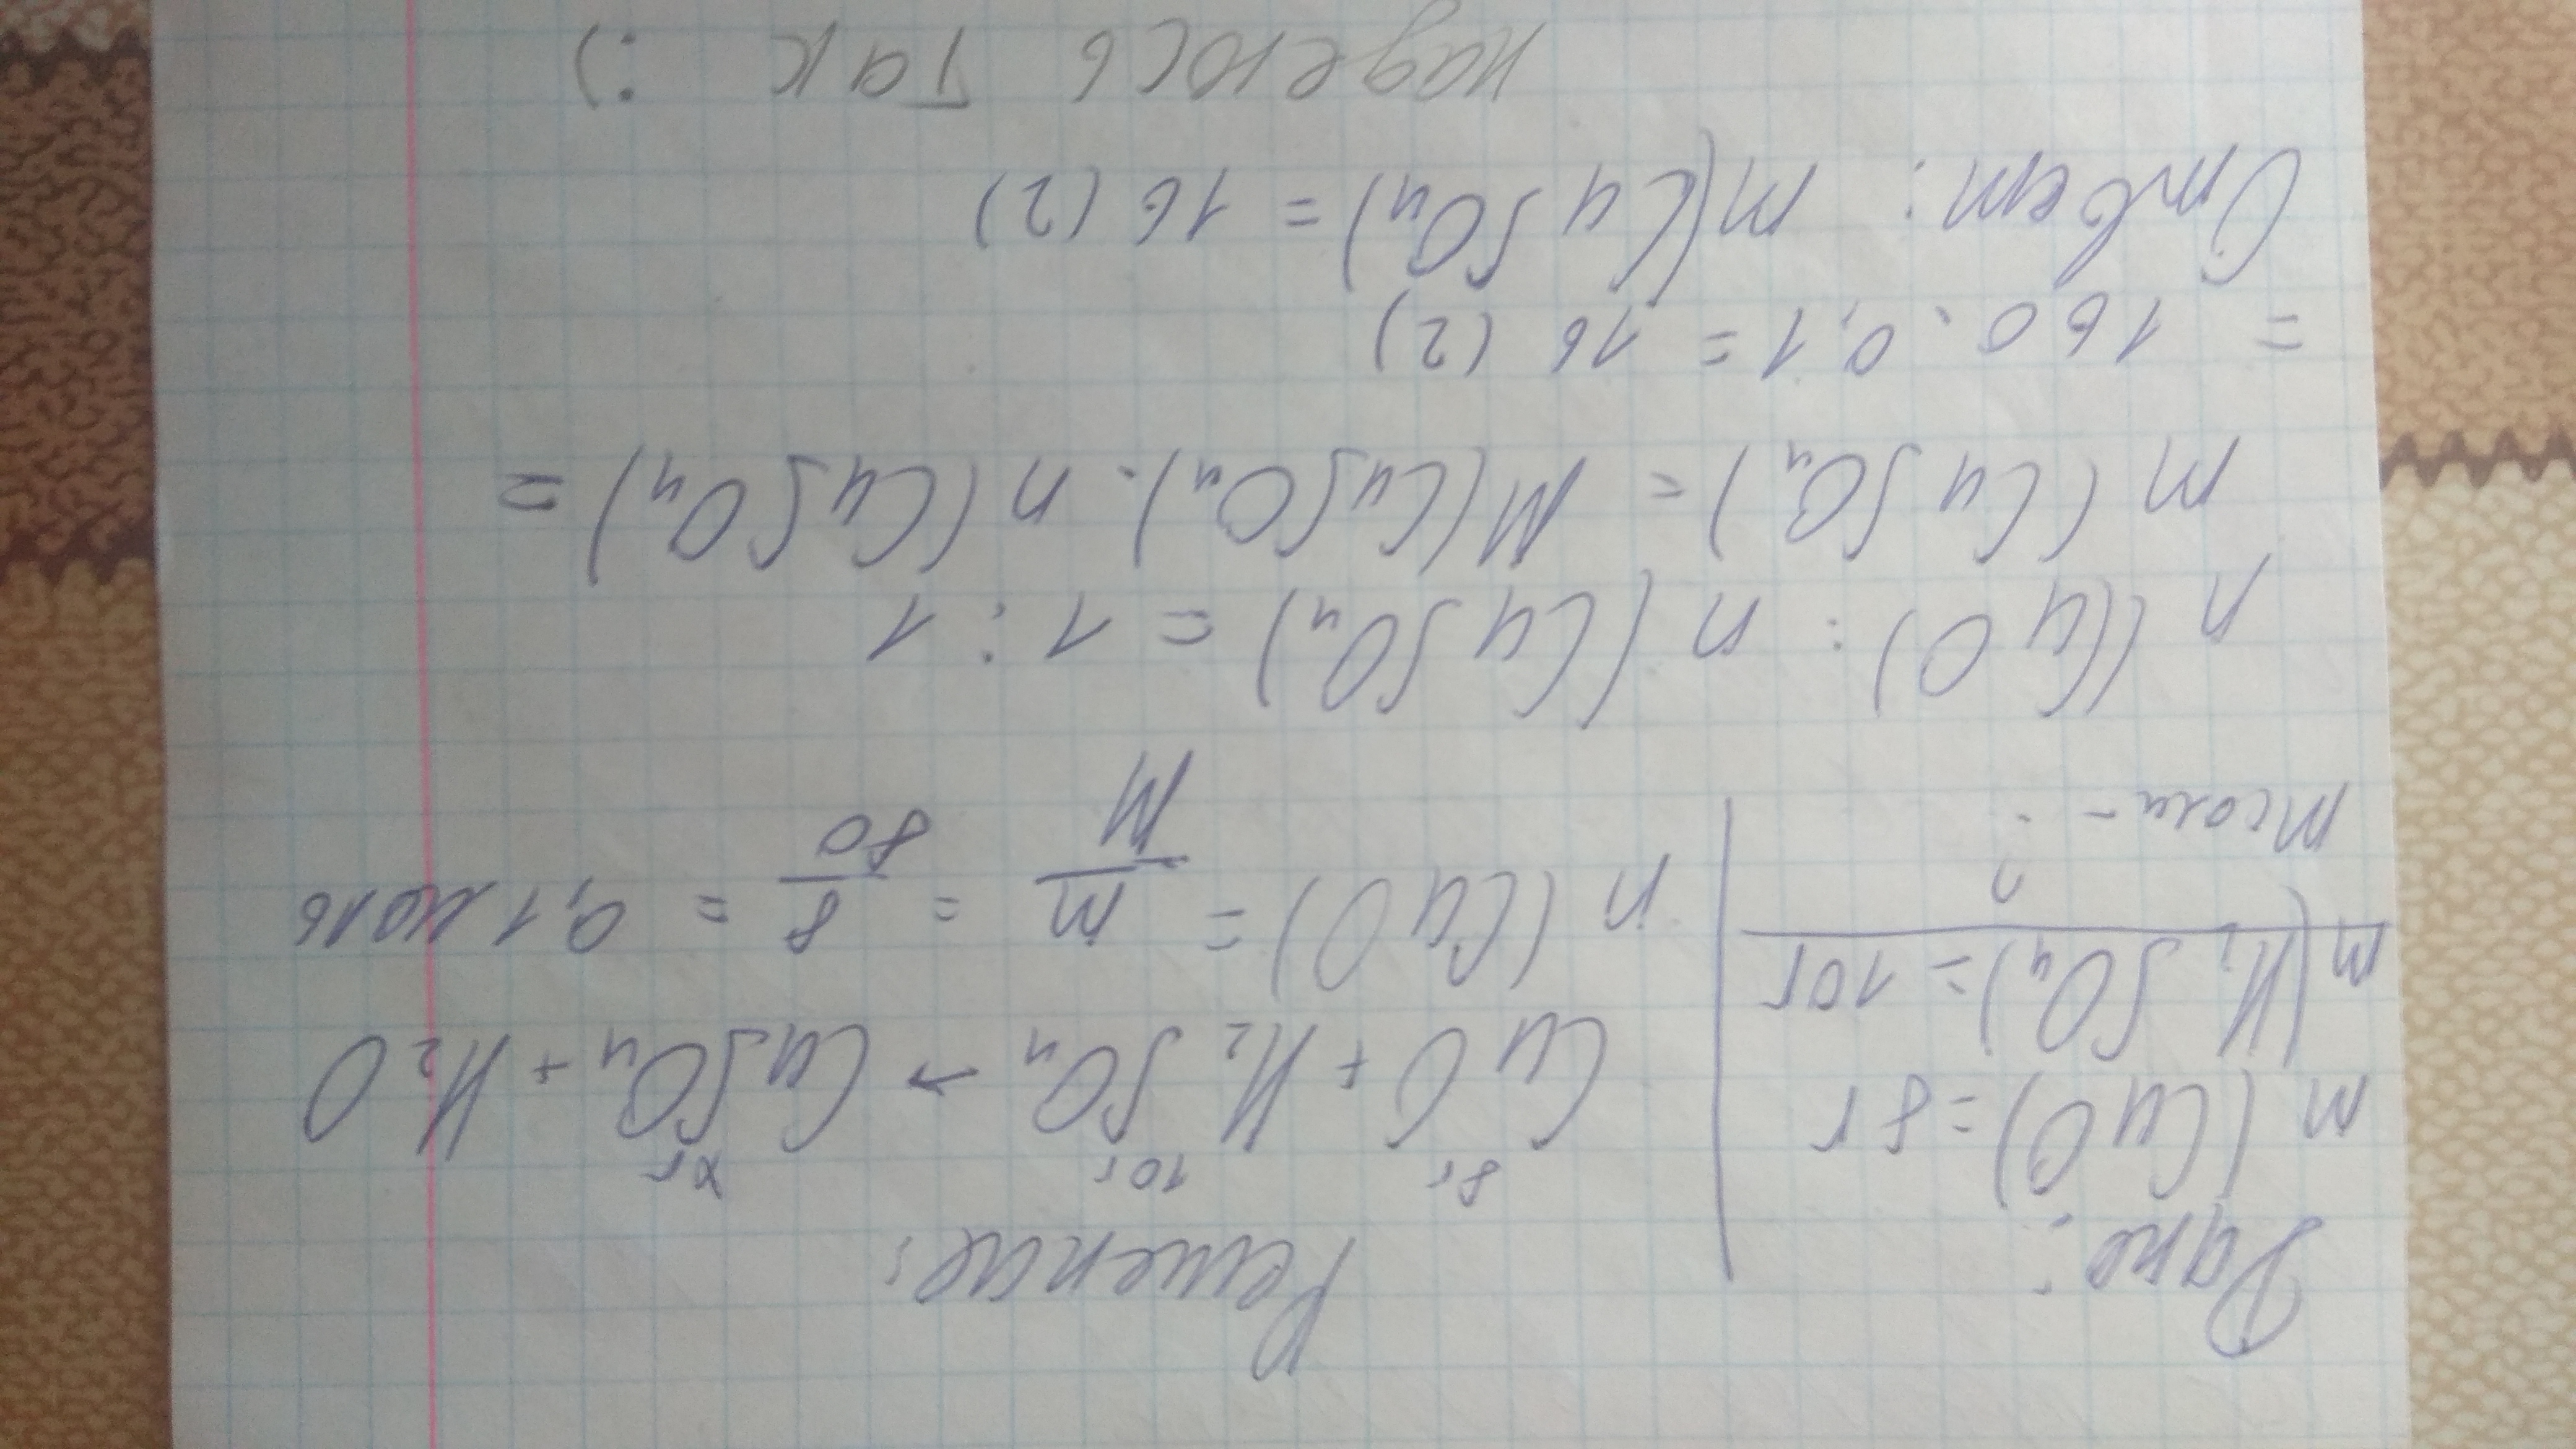 Дано:
m(CuO)=8г
m(H₂SO₄)=10г
m соли - ?
Решение:
8г 10г xг
CuO + H₂SO₄ → CuSO₄ + H₂O
n(CuO) = m/M = 8/80 = 0,1 моль
n(CuO) : n(CuSO₄) = 1 : 1
m(CuSO₄) = M(CuSO₄) · n(CuSO₄) =
= 160 · 0,1 = 16 (г)
Ответ: m(CuSO₄) = 16 (г)
надеюсь так :)